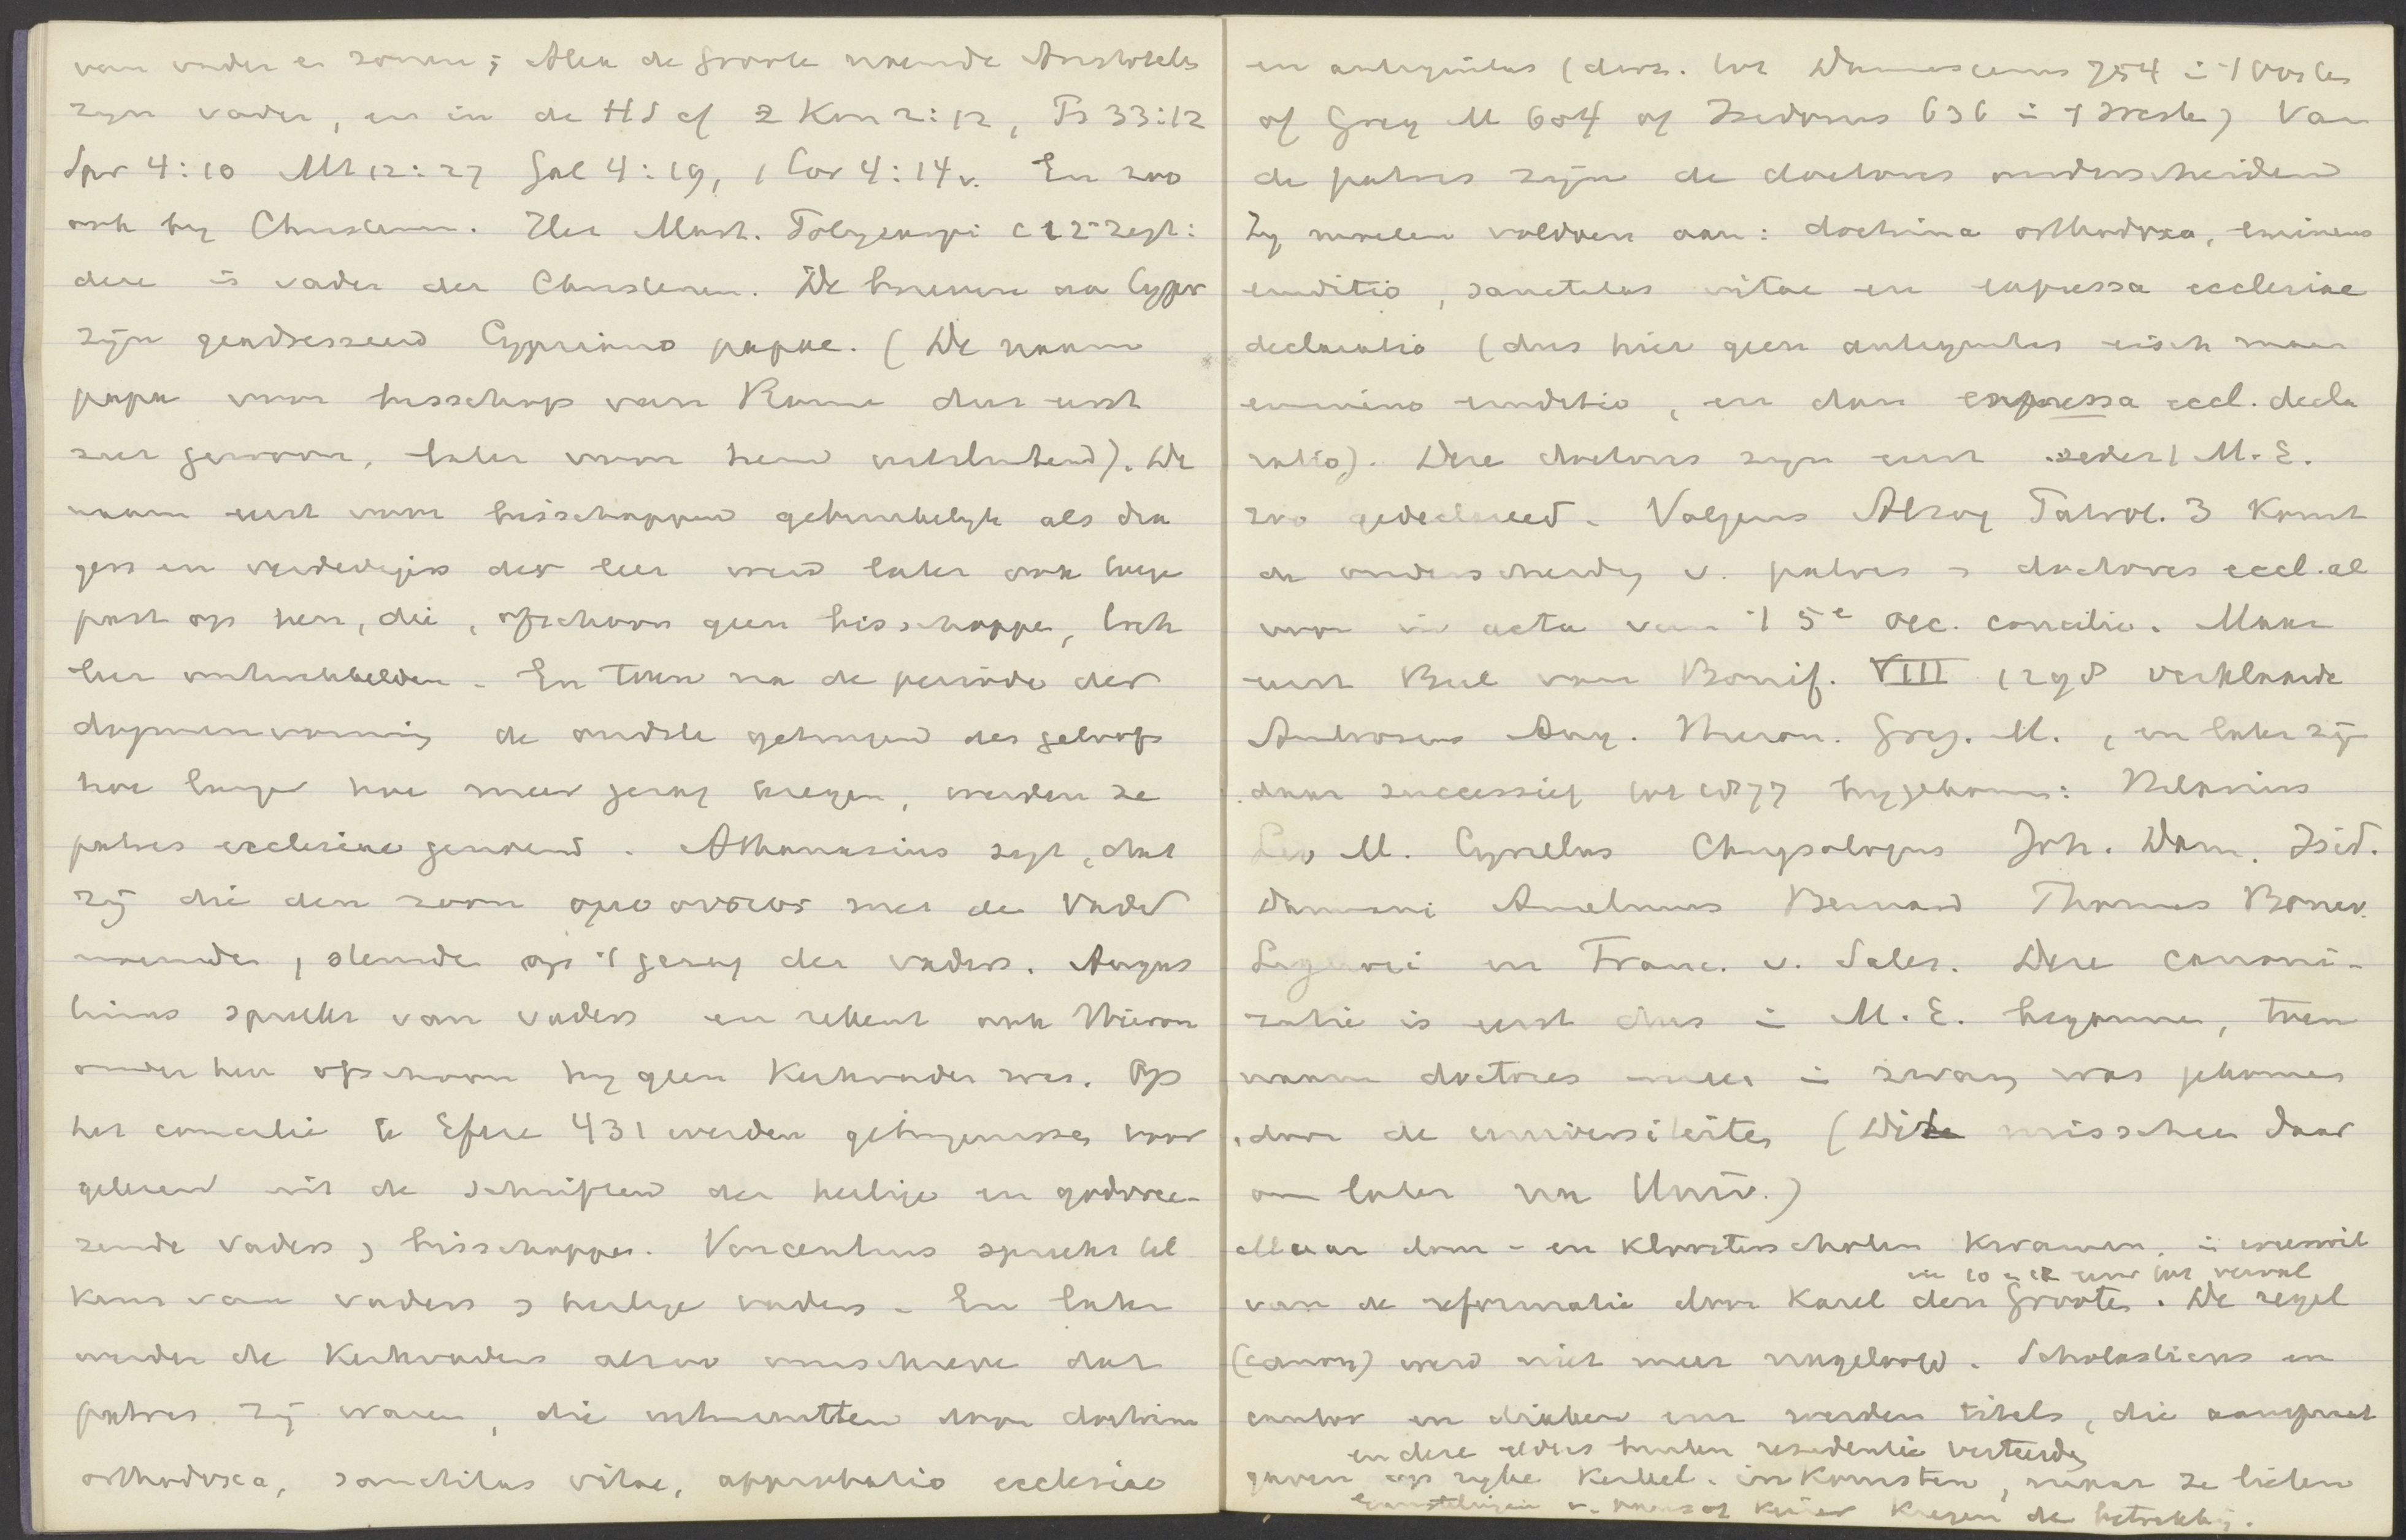 van vader en zonen; Alex de Groote noemde Aristoteles
zyn vader, en in de HS cf 2 Kon 2:12, Ps 33:12
Spr 4:10 Mt 12:27 Gal 4:19, 1 Cor 4:14v. En zoo
ook by Christenen. In Mart. Polycarpi c 12 zegt:
deze is vader der Christenen. De brieven aan Cypr
zijn geadresseerd Cypriano papae. (De naam
papa voor bisschop van Rome dus eerst
zeer gewoon, later voor hem uitsluitend). De
naam eerst voor bisschoppen gebruikelyk als dra
gers en verdedigers der leer werd later ook toege
past op hen, die, ofschoon geen bisschoppen, toch
leer ontwikkelden. En toen na de periode der
dogmenvorming de oudste getuigen des geloofs
hoe langer hoe meer gezag kregen, werden ze
patres ecclesiae genoemd. Athanasius zegt, dat
zij die den zoon ομοουσιος met den Vader
noemden, steunden op 't gezag der vaders. Augus
tinus spreekt van vaders en rekent ook Hieron
onder hen ofschoon hy geen Kerkvader was. Op
het concilie te Efeze 431 werden getuigenissen voor
gelezen uit de schriften der heilige en godvree-
zende vaders en bisschoppen. Vincentius spreekt tel
kens van vaders en heilige vaders. En later
werden de Kerkvaders alzoo omschreven dat
patres zij waren, die uitmuntten door doctrina
orthodoxa, sanctitas vitae, approbatio ecclesiae
en antiquitas (deze tot Damascenus 754 in 't Oosten
of Greg M 604 of Isidorus 636 in 't Westen) Van
de patres zijn de doctores onderscheiden
Zy moeten voldoen aan: doctrina orthodoxa, eminens
eruditio, sanctitas vitae en expressa ecclesiae
declaratio (dus hier geen antiquitas eisch maar
eminens eruditio, en dan expressa eccl. decla
ratio). Deze doctores zyn eerst sedert M.E.
zoo gedeclareerd. Volgens Alzog Patrol. 3 komt
de onderscheiding v. patres en doctores eccl. al
voor in acta van 't 5e oec. concilie. Maar
eerst Bul van Bonif. VIII 1298 verklaarde
Ambrosius Aug. Hieron. Greg. M., en later zijn
daar successief tot 1877 bygekomen: Hilarius
Leo M. Cyrillus Chrysologus Joh. Dam. Isid.
Damiani Anselmus Bernard Thomas Bonav.
Liguori en Franc. v. Sales. Deze canoni-
zatie is eerst dus in M.E. begonnen, toen
naam doctores meer in zwang was gekomen
door de universiteiten (Dit misschien daar
om later na Univ.)
Maar dom- en kloosterscholen kwamen in
in 10 en 11 eeuw tot verval
van de reformatie door Karel den Grooten. De regel
(canon) werd niet meer nageleefd. Scholasticus en
cantor in drieben eeuw werden titels, die aanspraak
en deze elders buiten residentie verteerden
gaven op rijke Kerkel. inkomsten, maar ze lieten
v. paus of keizer kregen de betrekking.